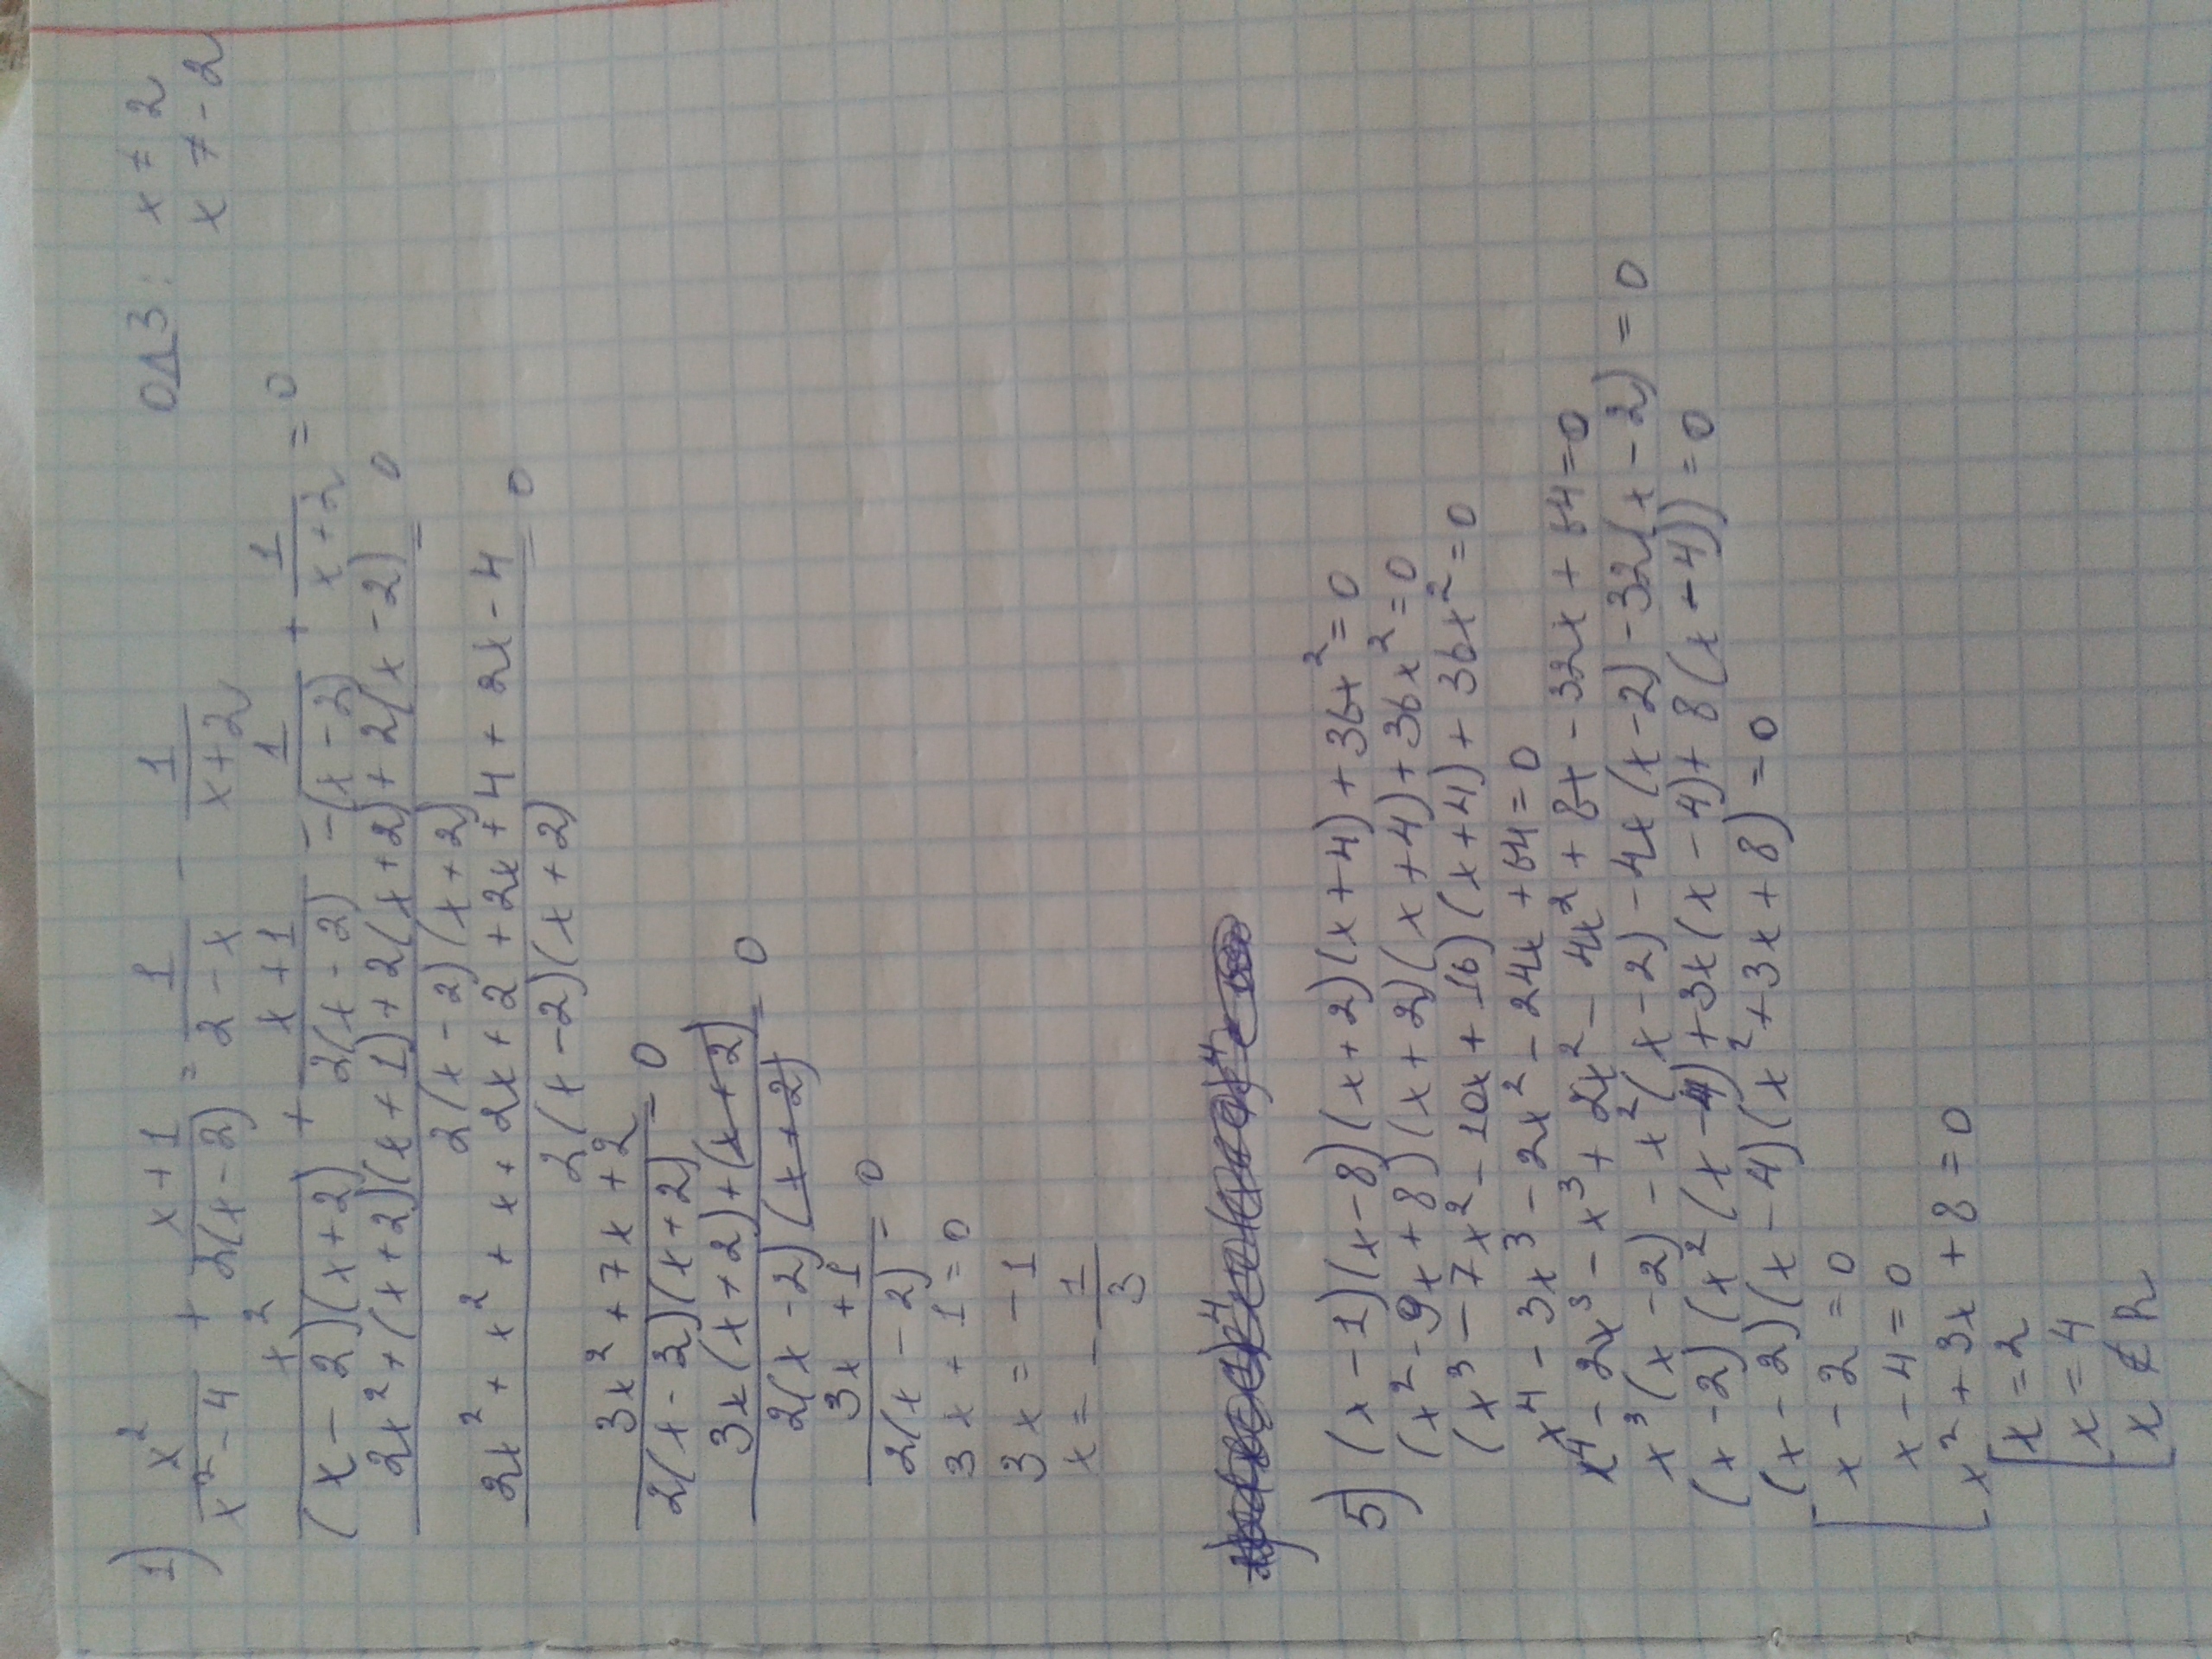 1) x²/(x²-4) + (x+1)/(2(x-2)) = 1/(2-x) - 1/(x+2) ОДЗ: x ≠ 2
x ≠ -2
x²/((x-2)(x+2)) + (x+1)/(2(x-2)) - 1/(-(x-2)) + 1/(x+2) = 0
(2x²+(x+2)(x+1)+2(x+2)+2(x-2))/(2(x-2)(x+2)) = 0
(2x²+x²+x+2x+2+2x+4+2x-4)/(2(x-2)(x+2)) = 0
(3x²+7x+2)/(2(x-2)(x+2)) = 0
(3x(x+2)+(x+2))/(2(x-2)(x+2)) = 0
(3x+1)/(2(x-2)) = 0
3x+1=0
3x=-1
x=-1/3
5) (x-1)(x-8)(x+2)(x+4)+36x²=0
(x²-9x+8)(x+2)(x+4)+36x²=0
(x³-7x²-10x+16)(x+4)+36x²=0
x⁴-3x³-2x²-24x+64=0
x⁴-2x³-x³+2x²-4x²+8x-32x+64=0
x³(x-2)-x²(x-2)-4x(x-2)-32(x-2)=0
(x-2)(x²(x-4)+3x(x-4)+8(x-4))=0
(x-2)(x-4)(x²+3x+8)=0
[x-2=0
x-4=0
x²+3x+8=0
[x=2
x=4
x∉R